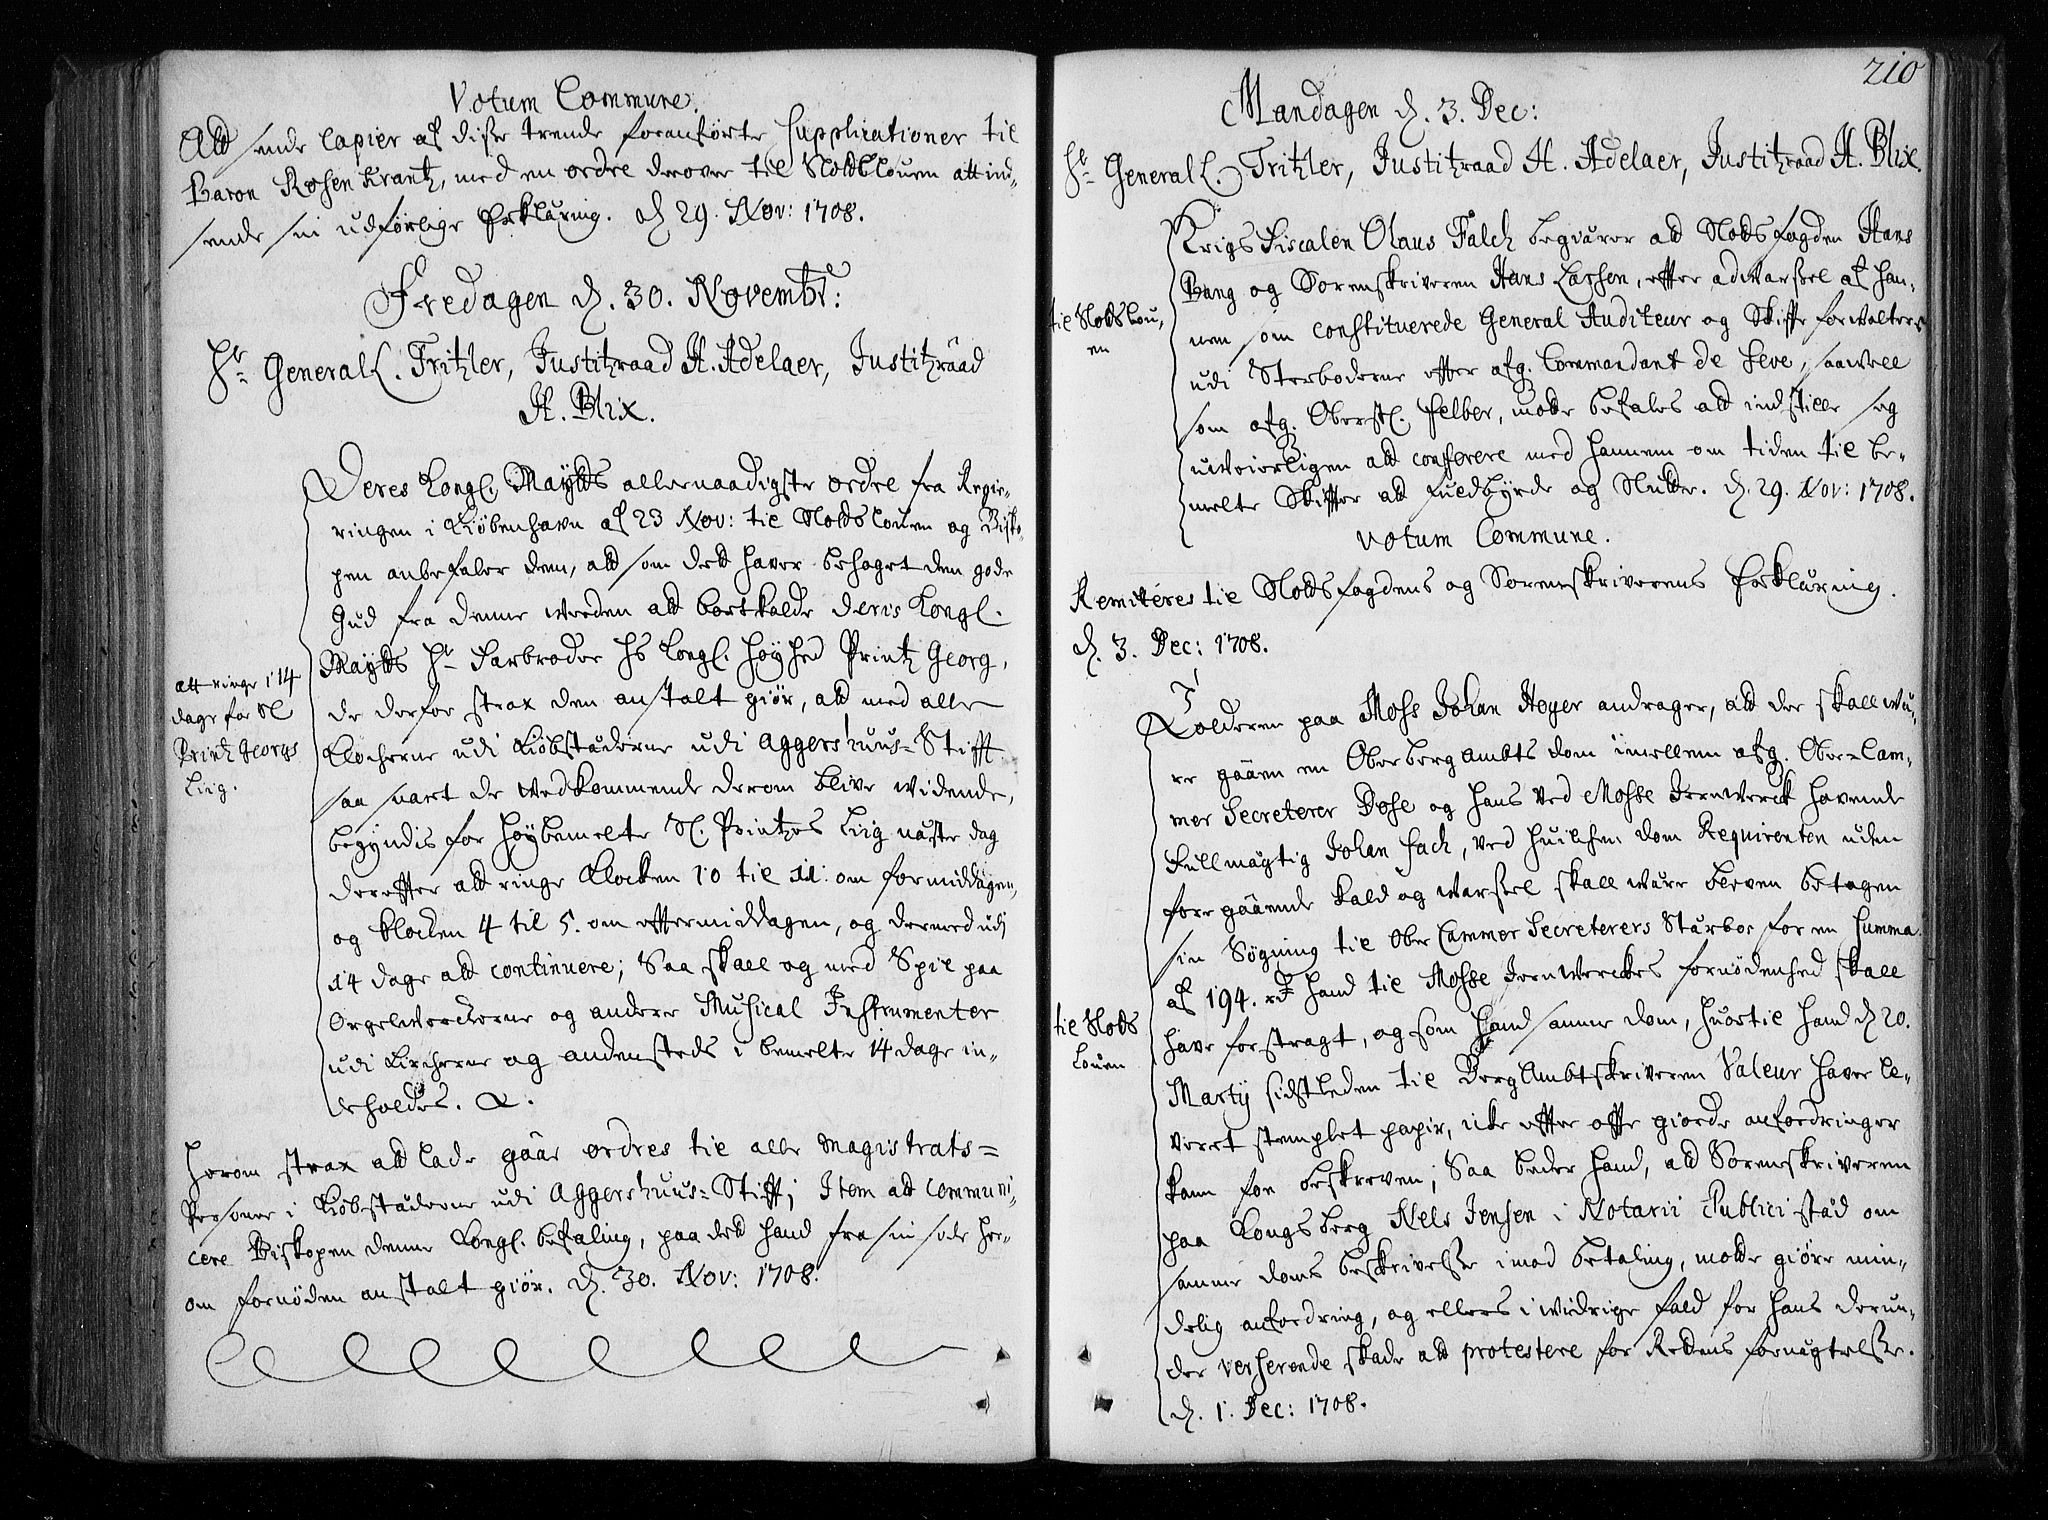 Votum Commune.
Att sende Copier af disse trende foranførte Supplicationer til
Baron Rosen Krantz, med en ordre derover til Slotslouen att ind-
sende sin udførlige Erklæring. d. 29. Nov: 1708.
Fredagen d. 30. Novembr:
Hr. General L. Tritzler, Justitzraad H. Adelaer, Justitzraad
H. Blix.
Deres Kongl. Maytts allernaadigste ordre fra Regie-
ringen i Kiøbenhavn af 23 Nov: til Slotslouen og Bisko-
pen anbefaler dem, att som dett haver behaget den gode
Gud fra denne Verden att bortkalde Deris Kongl.
Maytts Hr. Farbroder Hs Kongl. Høyhed Printz Georg,
att ringe i 14
dage for Sl
Printz Georgs
Liig.
de derfor strax den anstalt giør, att med alle
Klocherne udi Kiøbstæderne udi Aggershuus-Stifft
saa snart de vedkommende derom blive vidende,
begyndis for høybemelte Sl. Printzes Liig næste dag
derefter att ringe Klocken 10 til 11. om formiddagen,
og klocken 4 til 5. om eftermiddagen, og dermed udj
14 dage att continuere; Saa skall og med Spil paa
Orgelverckerne og andere Musical Instrumenter
udi Kircherne og andensteds i bemelte 14 dage in-
deholdes. &.
Herom strax att lade gaae ordres til alle Magistrats-
Personer i Kiøbstæderne udi Aggershuus-Stifft; Item att communi-
cere Biskopen denne Kongl. befaling, paa dett hand fra sin side her-
om fornøden anstalt giør. d. 30. Nov: 1708.
210
Mandagen d. 3. Dec:
Hr. General L. Tritzler, Justitzraad H. Adelaer, Justitzraad H. Blix.
Krigs Fiscalen Olaus Falch begiærer att Slotsfogden Hans
Bang og Sorenskriveren Hans Lassen, efter advarsel af han-
til Slotslou-
en
nem som constituerede General Auditeur og Skifte forvalter
udi Sterboderne efter afg. Commandant de Seve, saavell
som afg. Oberstl. Felber, motte befales att indstille sog
uveierligen att conferere med hannem om tiden til be-
melte Skiffter att fuldbyrde og Slutte. d. 29. Nov: 1708.
Votum Commune.
Remitéres til Slotsfogdens og Sorenskriverens Erklæring.
d. 3. Dec: 1708.
Tolderen paa Moss Johan Høyer andrager, att der skall væ-
re gaaen en Oberbergambts dom imellem afg. Ober-Cam-
mer Secreterer Dose og hans ved Mosse Jernverck havende
Fuldmægtig Johan Fach, ved huilchen dom Requirenten uden
foregaaende kald og Varsel skall være bleven betagen
sin Søgning til Ober Cammer Secreterers Stærboe for en Summa
af 194. rd hand til Mosse Jernverckes fornødenhed skall
til Slots
Louen
have forstragt, og som hand samme dom, huortil hand d. 20.
Marty sidstleden til Berg Ambtskriveren Valeur haver le-
veret stemplet papir, icke efter offte giorde anfordringer
kann for beskreven; Saa beder hand, att Sorenskriveren
paa Kongsberg Nels Jensen i Notarii Publici stæd om
samme doms beskrivelse imod betaling, motte giøre min-
delig anfordring, og ellers i vidrige fald for hans derun-
der verserende skade att protestere for Rettens fornægtelse.
d. 1. Dec: 1708.